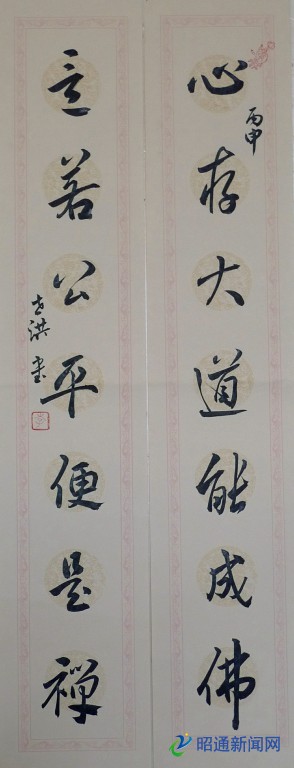 心存大道能成佛
丙申
言若公平便是禅
洪 書
昭通新闻网